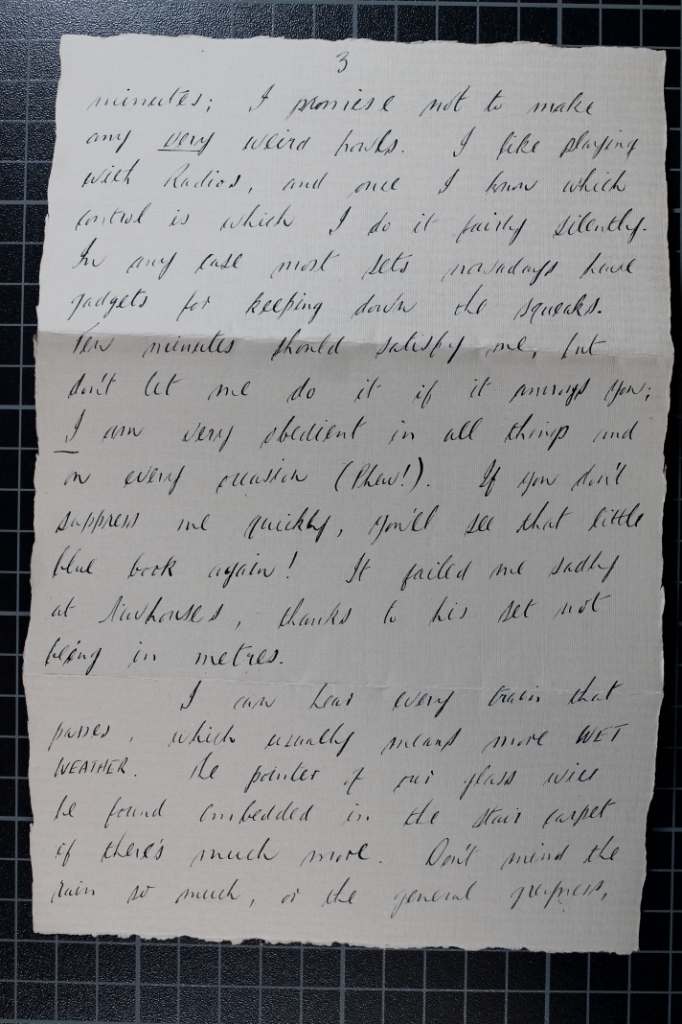 3
minutes; I promise not to make
any very weird howls. I like playing
with Radios, and once I know which
control is which I do it fairly silently.
In any case most sets nowadays have
gadgets for keeping down the squeaks.
Few minutes should satisfy me, but
don't let me do it if it annoys you;
I am very obedient in all things and
on every occasion (Phew!). If you don't
suppress me quickly, you'll see that little
blue book again! It failed me sadly
at , thanks to his set not
being in metres.
I can hear every train that
passes, which usually means more WET
WEATHER. The pointer of our glass will
be found embedded in the stair carpet
if there's much more. Don't mind the
rain so much, or the general greyness,